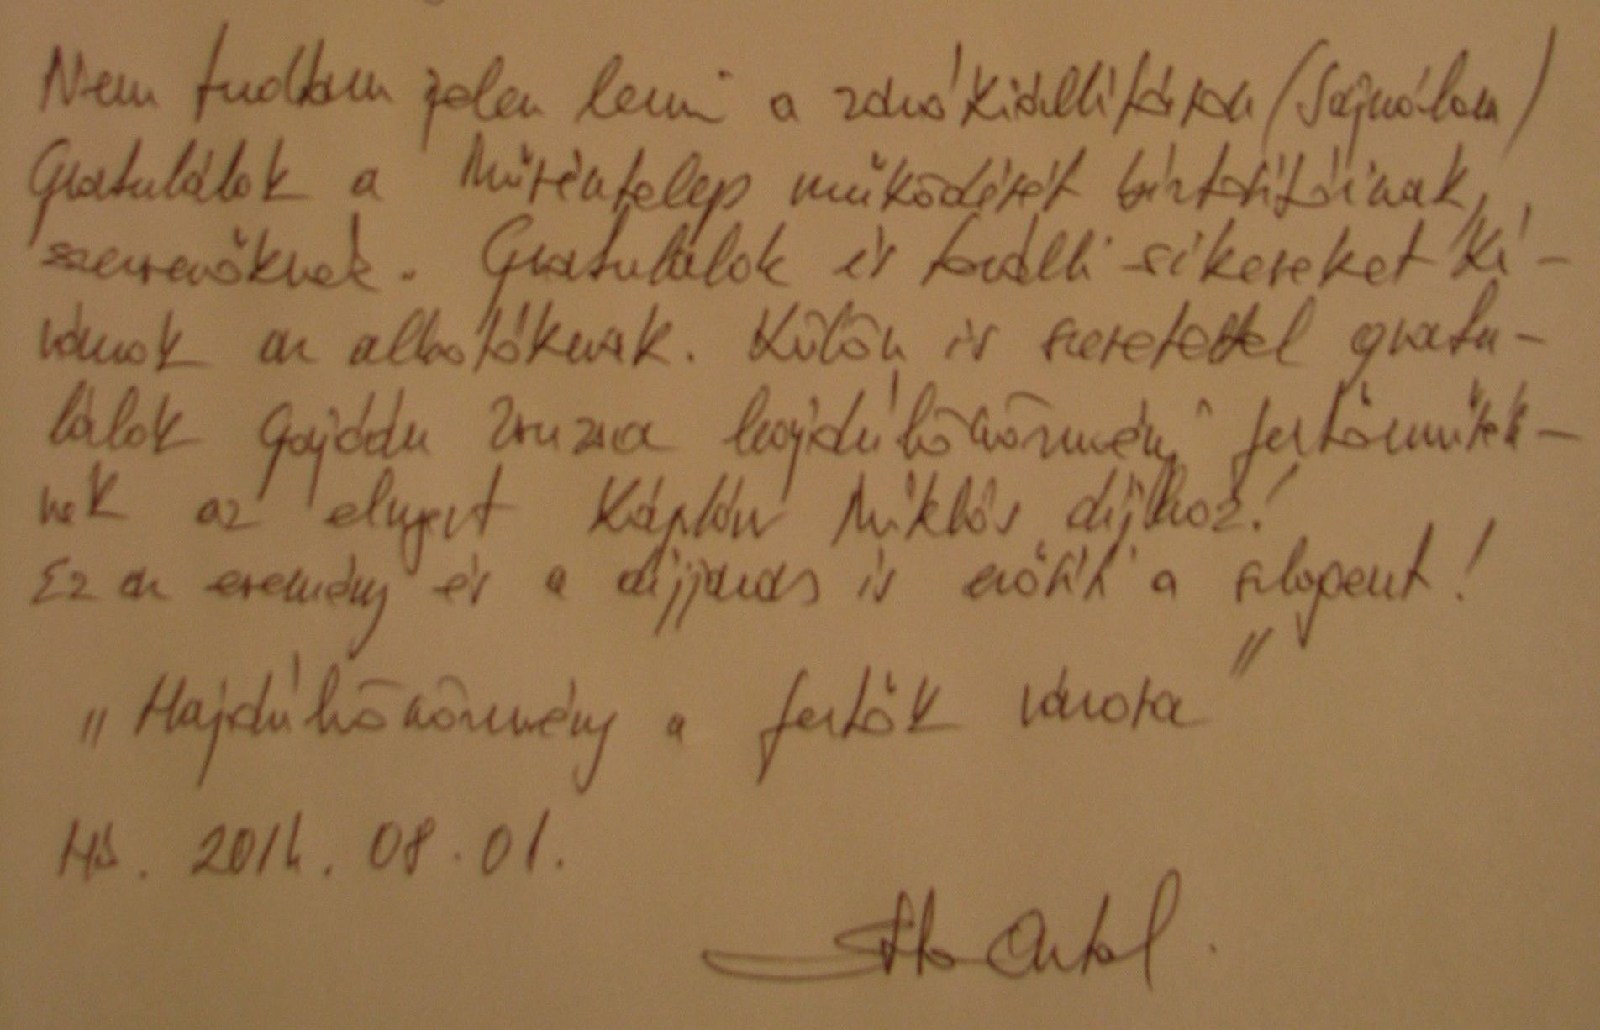 Nem tudtam jelen lenni a zárókiállításon (Sajnálom)
Gratulálok a Művésztelep működését biztosítóinak,
szervezőknek. Gratulálok és további sikereket kí-
vánok az alkotóknak. Külön is szeretettel gratu-
lálok Gajdán Zsuzsa hajdúböszörményi festőművész-
nek az elnyert Káplár Miklós díjhoz!
Ez az esemény és a díj is erősíti a szlogent!
„Hajdúböszörmény a festők városa"
Hb. 2014. 08. 01.
Antal